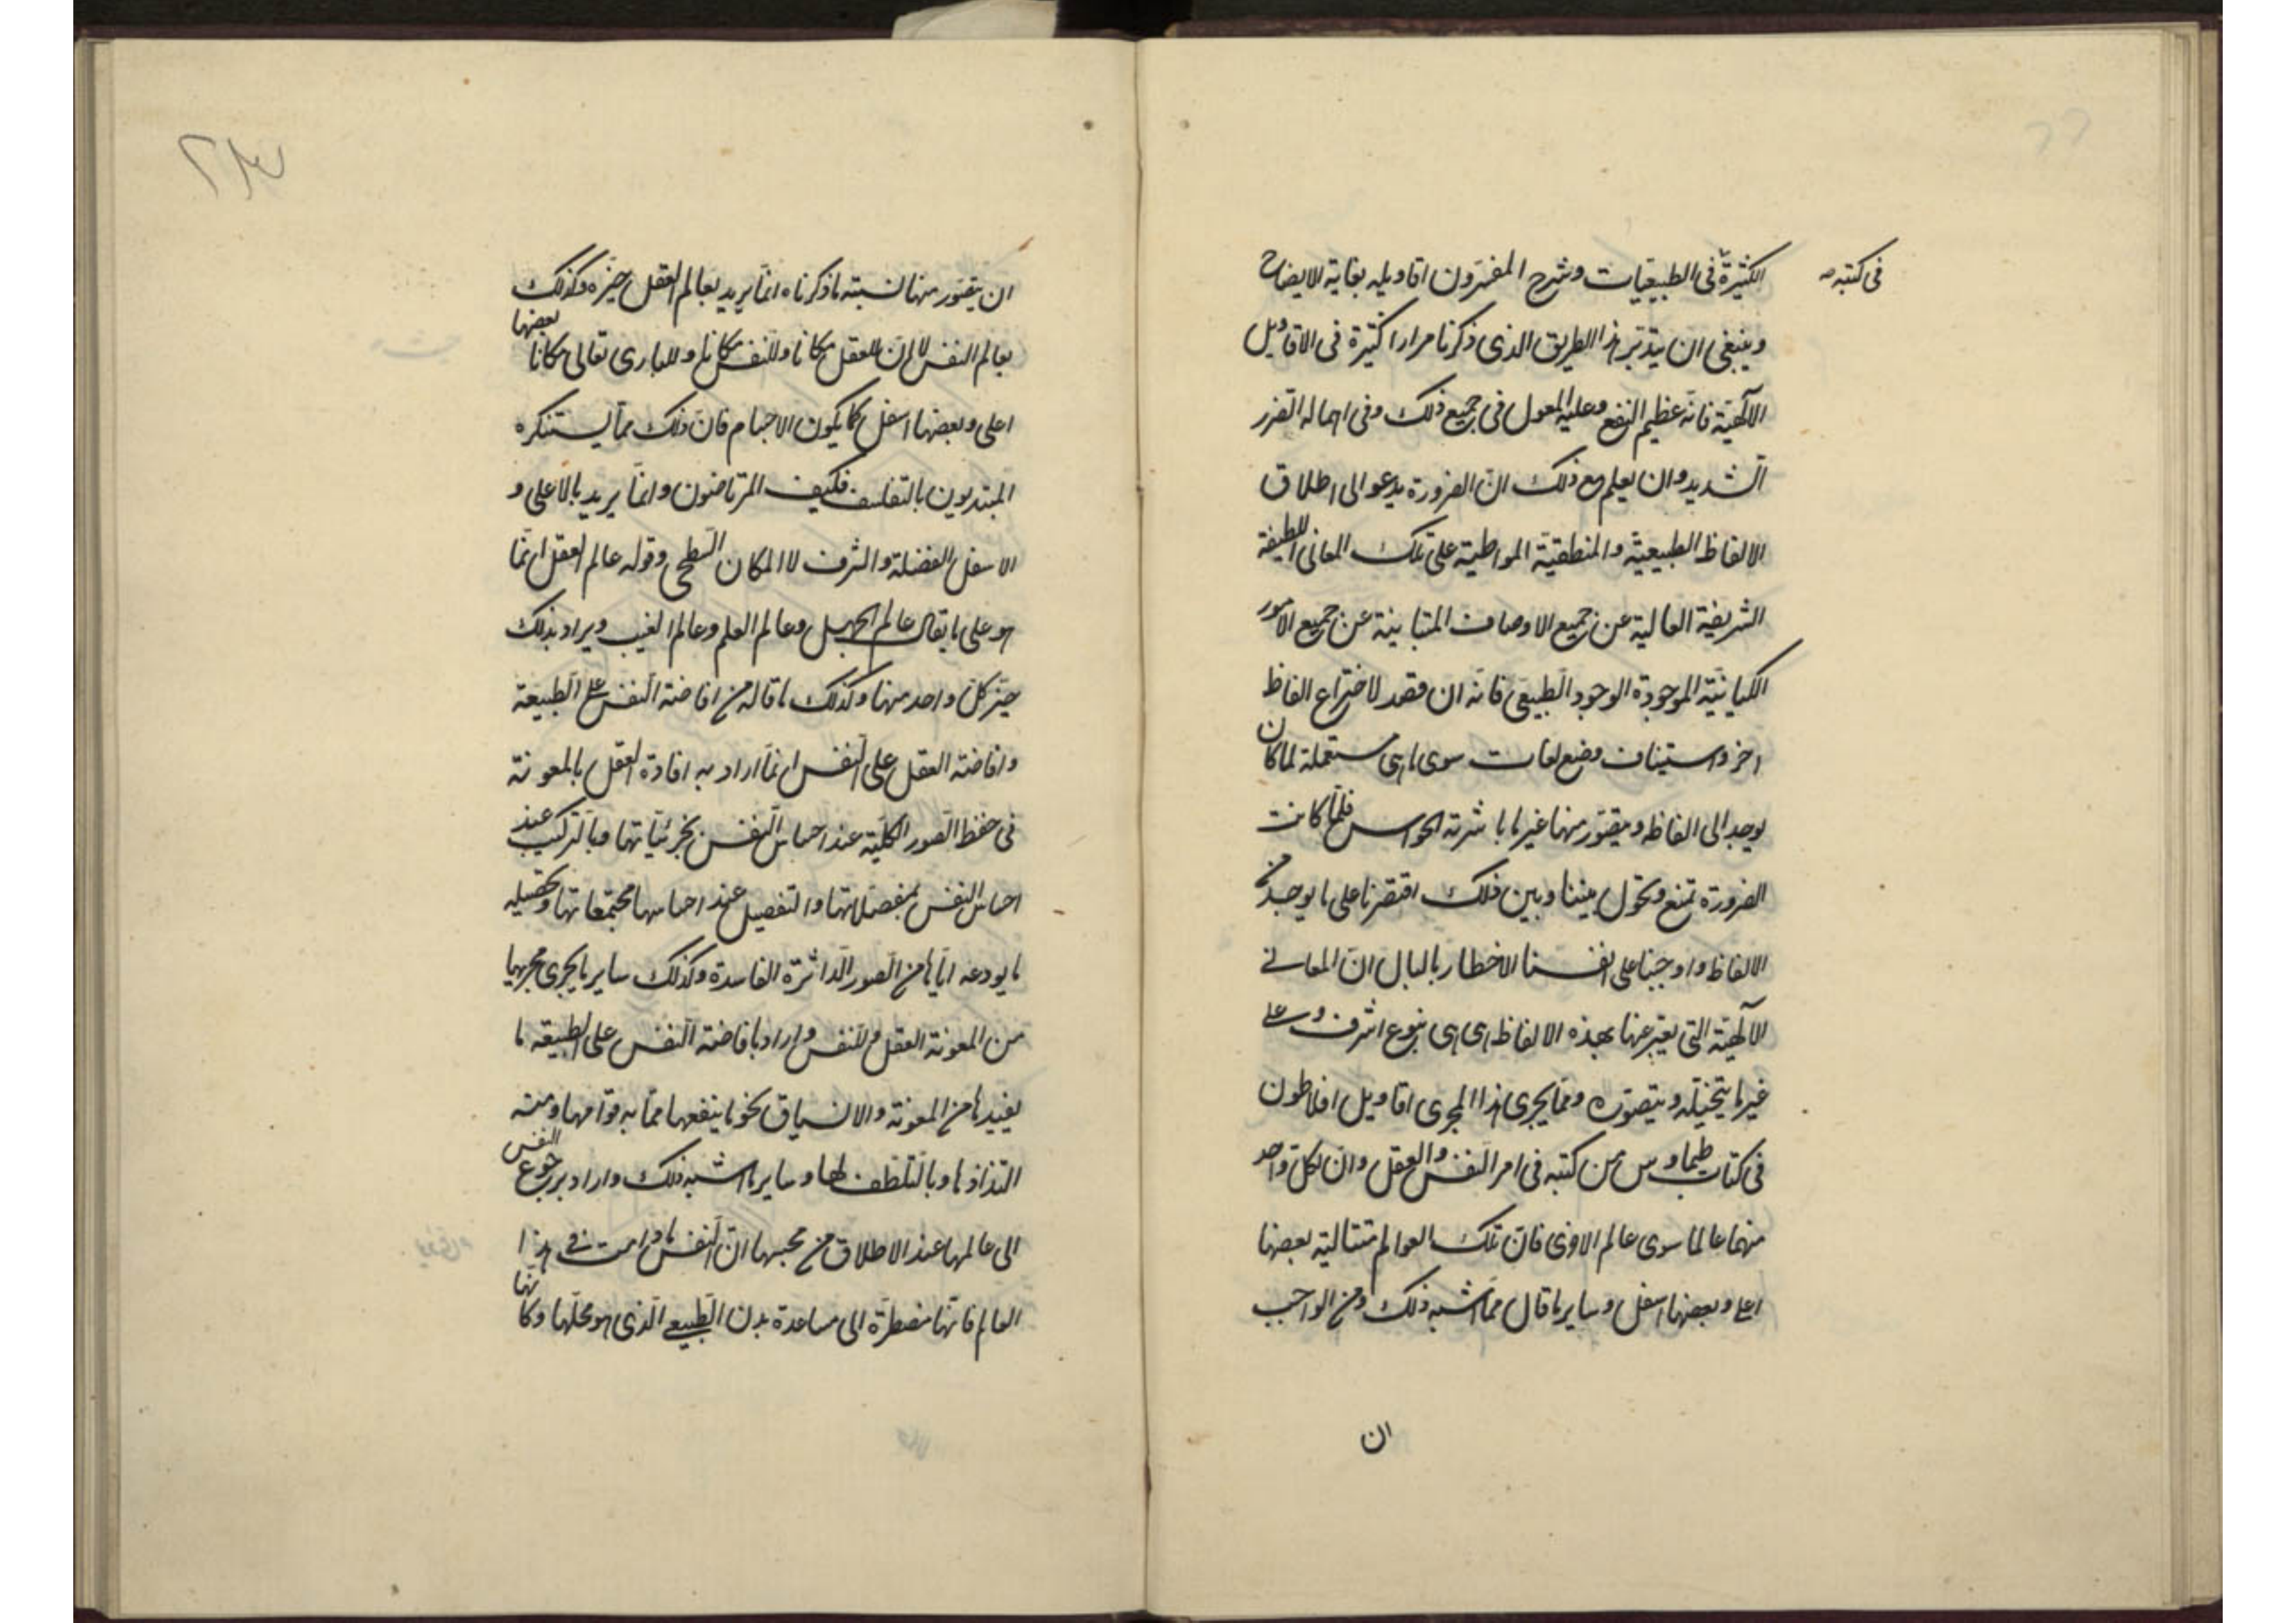 في كتبه
الكثيرة في الطبيعيات وشرح المفسرون اقاويله بغاية الايضاح
وينبغي ان يتدبر هذا الطريق الذي ذكرنا مرارا كثيرة في الاقاويل
الآلهية فانه عظيم النفع وعليه المعول في جميع ذلك وفي اهماله الضرر
الشديد وان يعلم مع ذلك ان الضرورة يدعو الى اطلاق
الالفاظ الطبيعية والمنطقية المواطية على تلك المعاني اللطيفة
الشريفة العالية عن جميع الاوصاف المتباينة عن جميع الامور
الكيانية الموجودة الوجود الطبيعي فانه ان قصد لاختراع الفاظ
اخر واستيناف وضع لغات سوى ما هي مستعملة لما كان
يوجد الى الفاظه ويتصور منها غير ما باشرته الحواس فلما كانت
الضرورة تمنع وتحول بيننا وبين ذلك اقتصرنا على ما يوجد من
الالفاظ واوجبنا على انفسنا الاخطار بالبال ان المعاني
الآلهية التي يعبر عنها بهذه الالفاظ هي بنوع اشرف وعلى
غير ما يتخيله ويتصوره ومما يجري هذا المجرى اقاويل افلاطون
في كتاب طيماوس من كتبه في امر النفس والعقل وان لكل واحد
منهما عالما سوى عالم الاخرى فان تلك العوالم متتالية بعضها
اعلى وبعضها اسفل وساير ما قال مما اشبه ذلك ومن الواجب
ان
٢٣
ان يتصور منها نسبته ما ذكرناه انما يريد بعالم العقل حيزه وكذلك
بعالم النفس لا ان للعقل مكانا وللنفس مكانا وللباري تعالى مكانا بعضها
اعلى وبعضها اسفل كما يكون الاجسام فان ذلك مما يستنكره
المبتديون بالتفلسف فكيف المرتاضون وانما يريد بالاعلى و
الاسفل الفضيلة والشرف لا المكان السطحي وقوله عالم العقل انما
هو على ما يقال عالم الجهل وعالم العلم وعالم الغيب ويراد بذلك
حيز كل واحد منها وكذلك ما قاله من افاضة النفس على الطبيعة
وافاضة العقل على النفس انما اراد به افادة العقل بالمعونة
في حفظ الصور الكلية عند احساس النفس بجزئياتها وبالتركيب عند
احساس النفس بمفصلاتها والتفصيل عند احساسها مجتمعاتها وتحصيله
ما يودعه اياها من الصور الداثرة الفاسدة وكذلك ساير ما يجري مجريها
من المعونة العقل وللنفس واراد بافاضة النفس على الطبيعة ما
يفيدها من المعونة والانسياق نحو ما ينفعها مما به قوامها ومنه
التذاذها وبالتلطف لها وساير ما اشبه ذلك واراد برجوع النفس
الى عالمها عند الاطلاق من محبسها ان النفس ما دامت في هذا
العالم فانها مضطرة الى مساعدة بدن الطبيعي الذي هو محلها وكانها